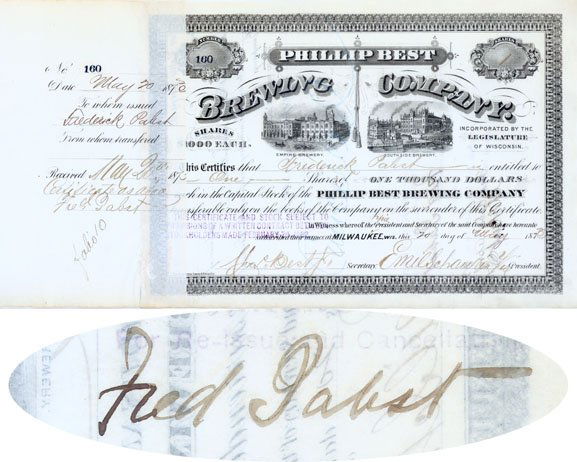 NUMBER
160
SHARES
PHILLIP BEST
BREWING COMPANY.
No. 160
Date May 20 187
To whom issued
Frederick Pabst
From whom transferred
Received May 20 187
Fred Pabst
SHARES
$1000 EACH.
EMPIRE BREWERY.
SOUTH SIDE BREWERY.
INCORPORATED BY THE
LEGISLATURE
OF WISCONSIN.
This Certifies that Frederick Pabst is entitled to
One Shares of ONE THOUSAND DOLLARS
each in the Capital Stock of the PHILLIP BEST BREWING COMPANY
transferable only on the books of the Company on the surrender of this Certificate.
THIS CERTIFICATE AND STOCK SUBJECT TO
PROVISIONS OF A WRITTEN CONTRACT BETWEEN
STOCKHOLDERS DATED FEBRUARY
In Witness the President and Secretary of the said Company have hereunto
subscribed their names at MILWAUKEE, Wis. this 20 day of May 187
Secretary. Emil Schandein President
For Re-issue and Cancellation
Fred Pabst